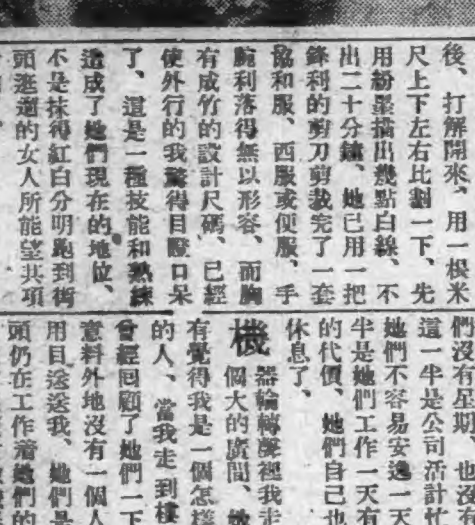 後、打解開來、用一根米
尺上下左右比劃一下、先
用粉墨描出幾點白線、不
出二十分鐘、她已用一把
鋒利的剪刀剪裁完了一套
協和服、西服或便服、手
腕利落得無以形容、而胸
有成竹的設計尺碼、已經
使外行的我驚得目瞪口呆
了、這是一種技能和熟練
造成了她們現在的地位、
不是抹得紅白分明跑到街
頭逛遛的女人所能望其項
們沒有星期、也沒
這一半是公司活計忙
她們不容易安逸一天
半是她們工作一天有
的代價、她們自己也
休息了、
機器輪轉聲裡我走
個大的廣間、
有覺得我是一個怎樣
的人、當我走到樓
會經回顧了她們一下
意料外地沒有一個人
用目送送我、她們是
頭仍在工作着她們的